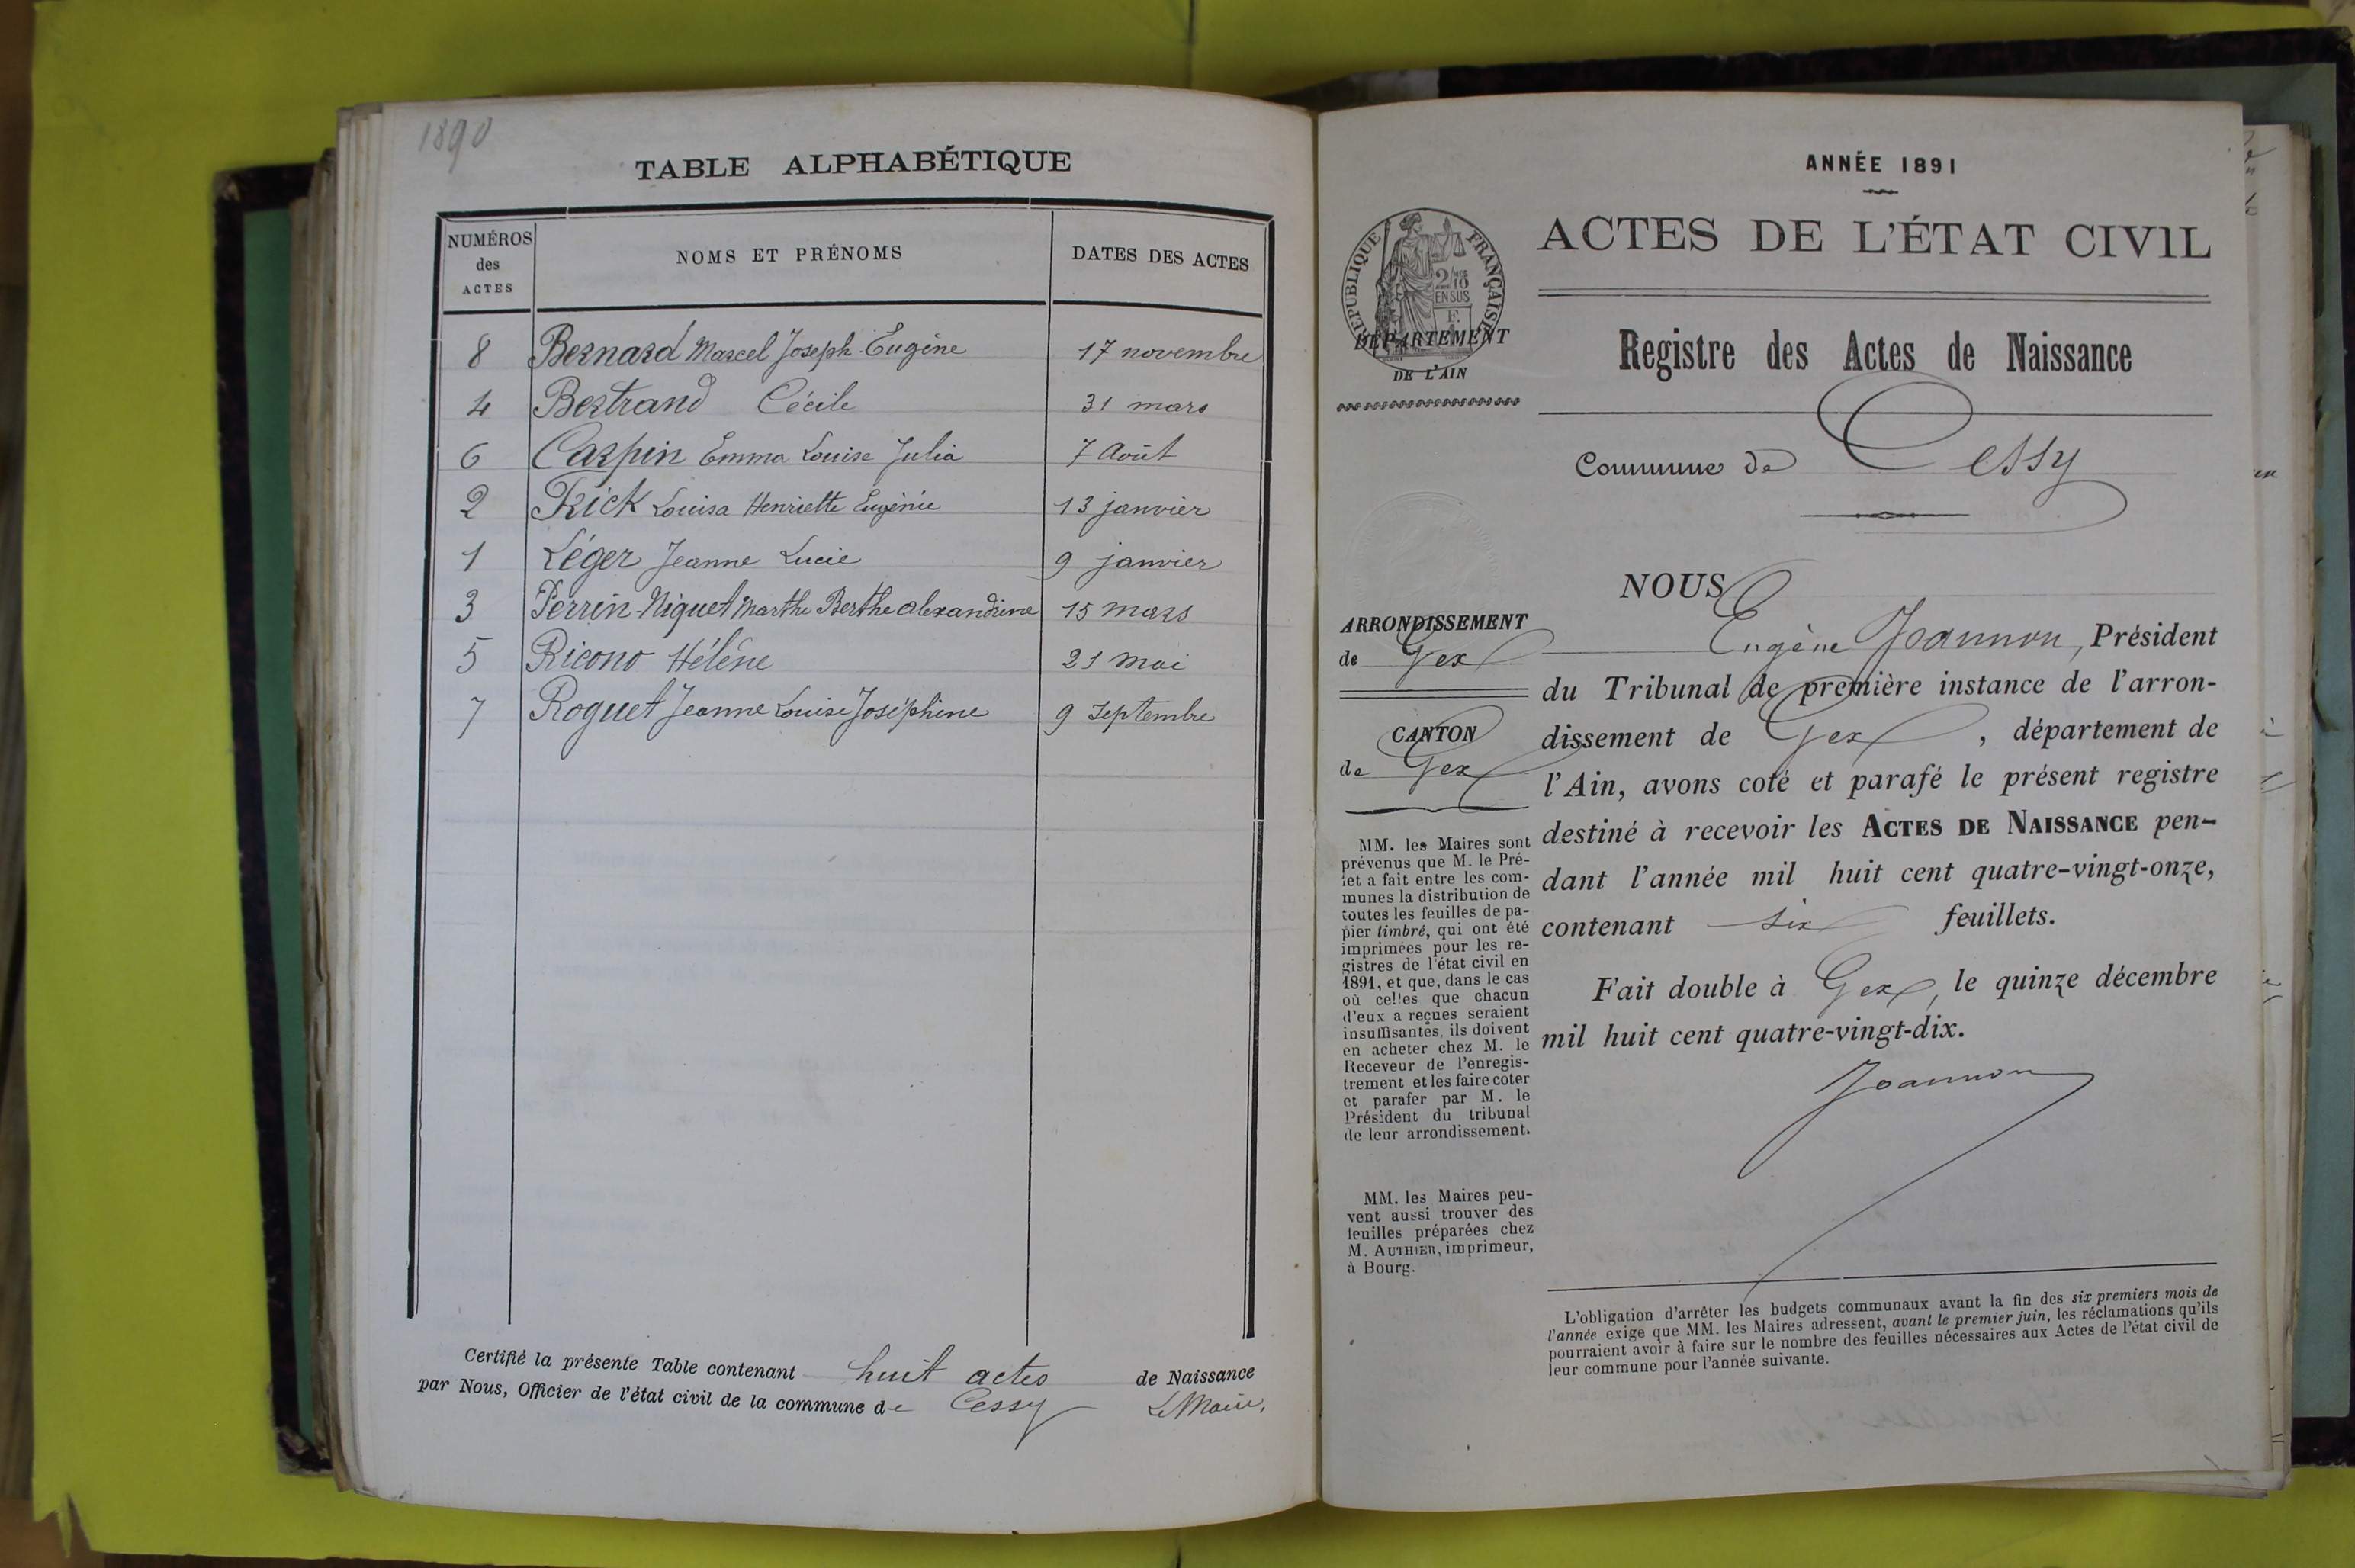 1890
TABLE ALPHABÉTIQUE
NUMÉROS des ACTES NOMS ET PRÉNOMS DATES DES ACTES
8 Bernard Marcel Joseph Eugène 17 novembre
4 Bertrand Cécile 31 mars
6 Carpin Emma Louise Julia 7 Août
2 Frick Louisa Henriette Eugénie 13 janvier
1 Léger Jeanne Lucie 9 janvier
3 Perrin-Niquet Marthe Berthe alexandrine 15 mars
5 Ricono Hélène 21 Mai
7 Roguet Jeanne Louise Joséphine 9 Septembre
Certifié la présente Table contenant huit actes de Naissance
par Nous, Officier de l'état civil de la commune de Cessy Le Maire,
ANNÉE 1891
ACTES DE L'ÉTAT CIVIL
RÉPUBLIQUE FRANÇAISE
2/10 EN SUS
DÉPARTEMENT
DE L'AIN
Registre des Actes de Naissance
Commune de Cessy
ARRONDISSEMENT
de Gex
CANTON
de Gex
MM. les Maires sont
prévenus que M. le Pré-
fet a fait entre les com-
munes la distribution de
toutes les feuilles de pa-
pier timbré, qui ont été
imprimées pour les re-
gistres de l'état civil en
1891, et que, dans le cas
où celles que chacun
d'eux a reçues seraient
insuffisantes, ils doivent
en acheter chez M. le
Receveur de l'enregis-
trement et les faire coter
et parafer par M. le
Président du tribunal
de leur arrondissement.
MM. les Maires peu-
vent aussi trouver des
feuilles préparées chez
M. AUTHIER, imprimeur,
à Bourg.
NOUS
Eugène Joannon, Président
du Tribunal de première instance de l'arron-
dissement de Gex, département de
l'Ain, avons coté et parafé le présent registre
destiné à recevoir les ACTES DE NAISSANCE pen-
dant l'année mil huit cent quatre-vingt-onze,
contenant six feuillets.
Fait double à Gex, le quinze décembre
mil huit cent quatre-vingt-dix.
Joannon
L'obligation d'arrêter les budgets communaux avant la fin des six premiers mois de
l'année exige que MM. les Maires adressent, avant le premier juin, les réclamations qu'ils
pourraient avoir à faire sur le nombre des feuilles nécessaires aux Actes de l'état civil de
leur commune pour l'année suivante.